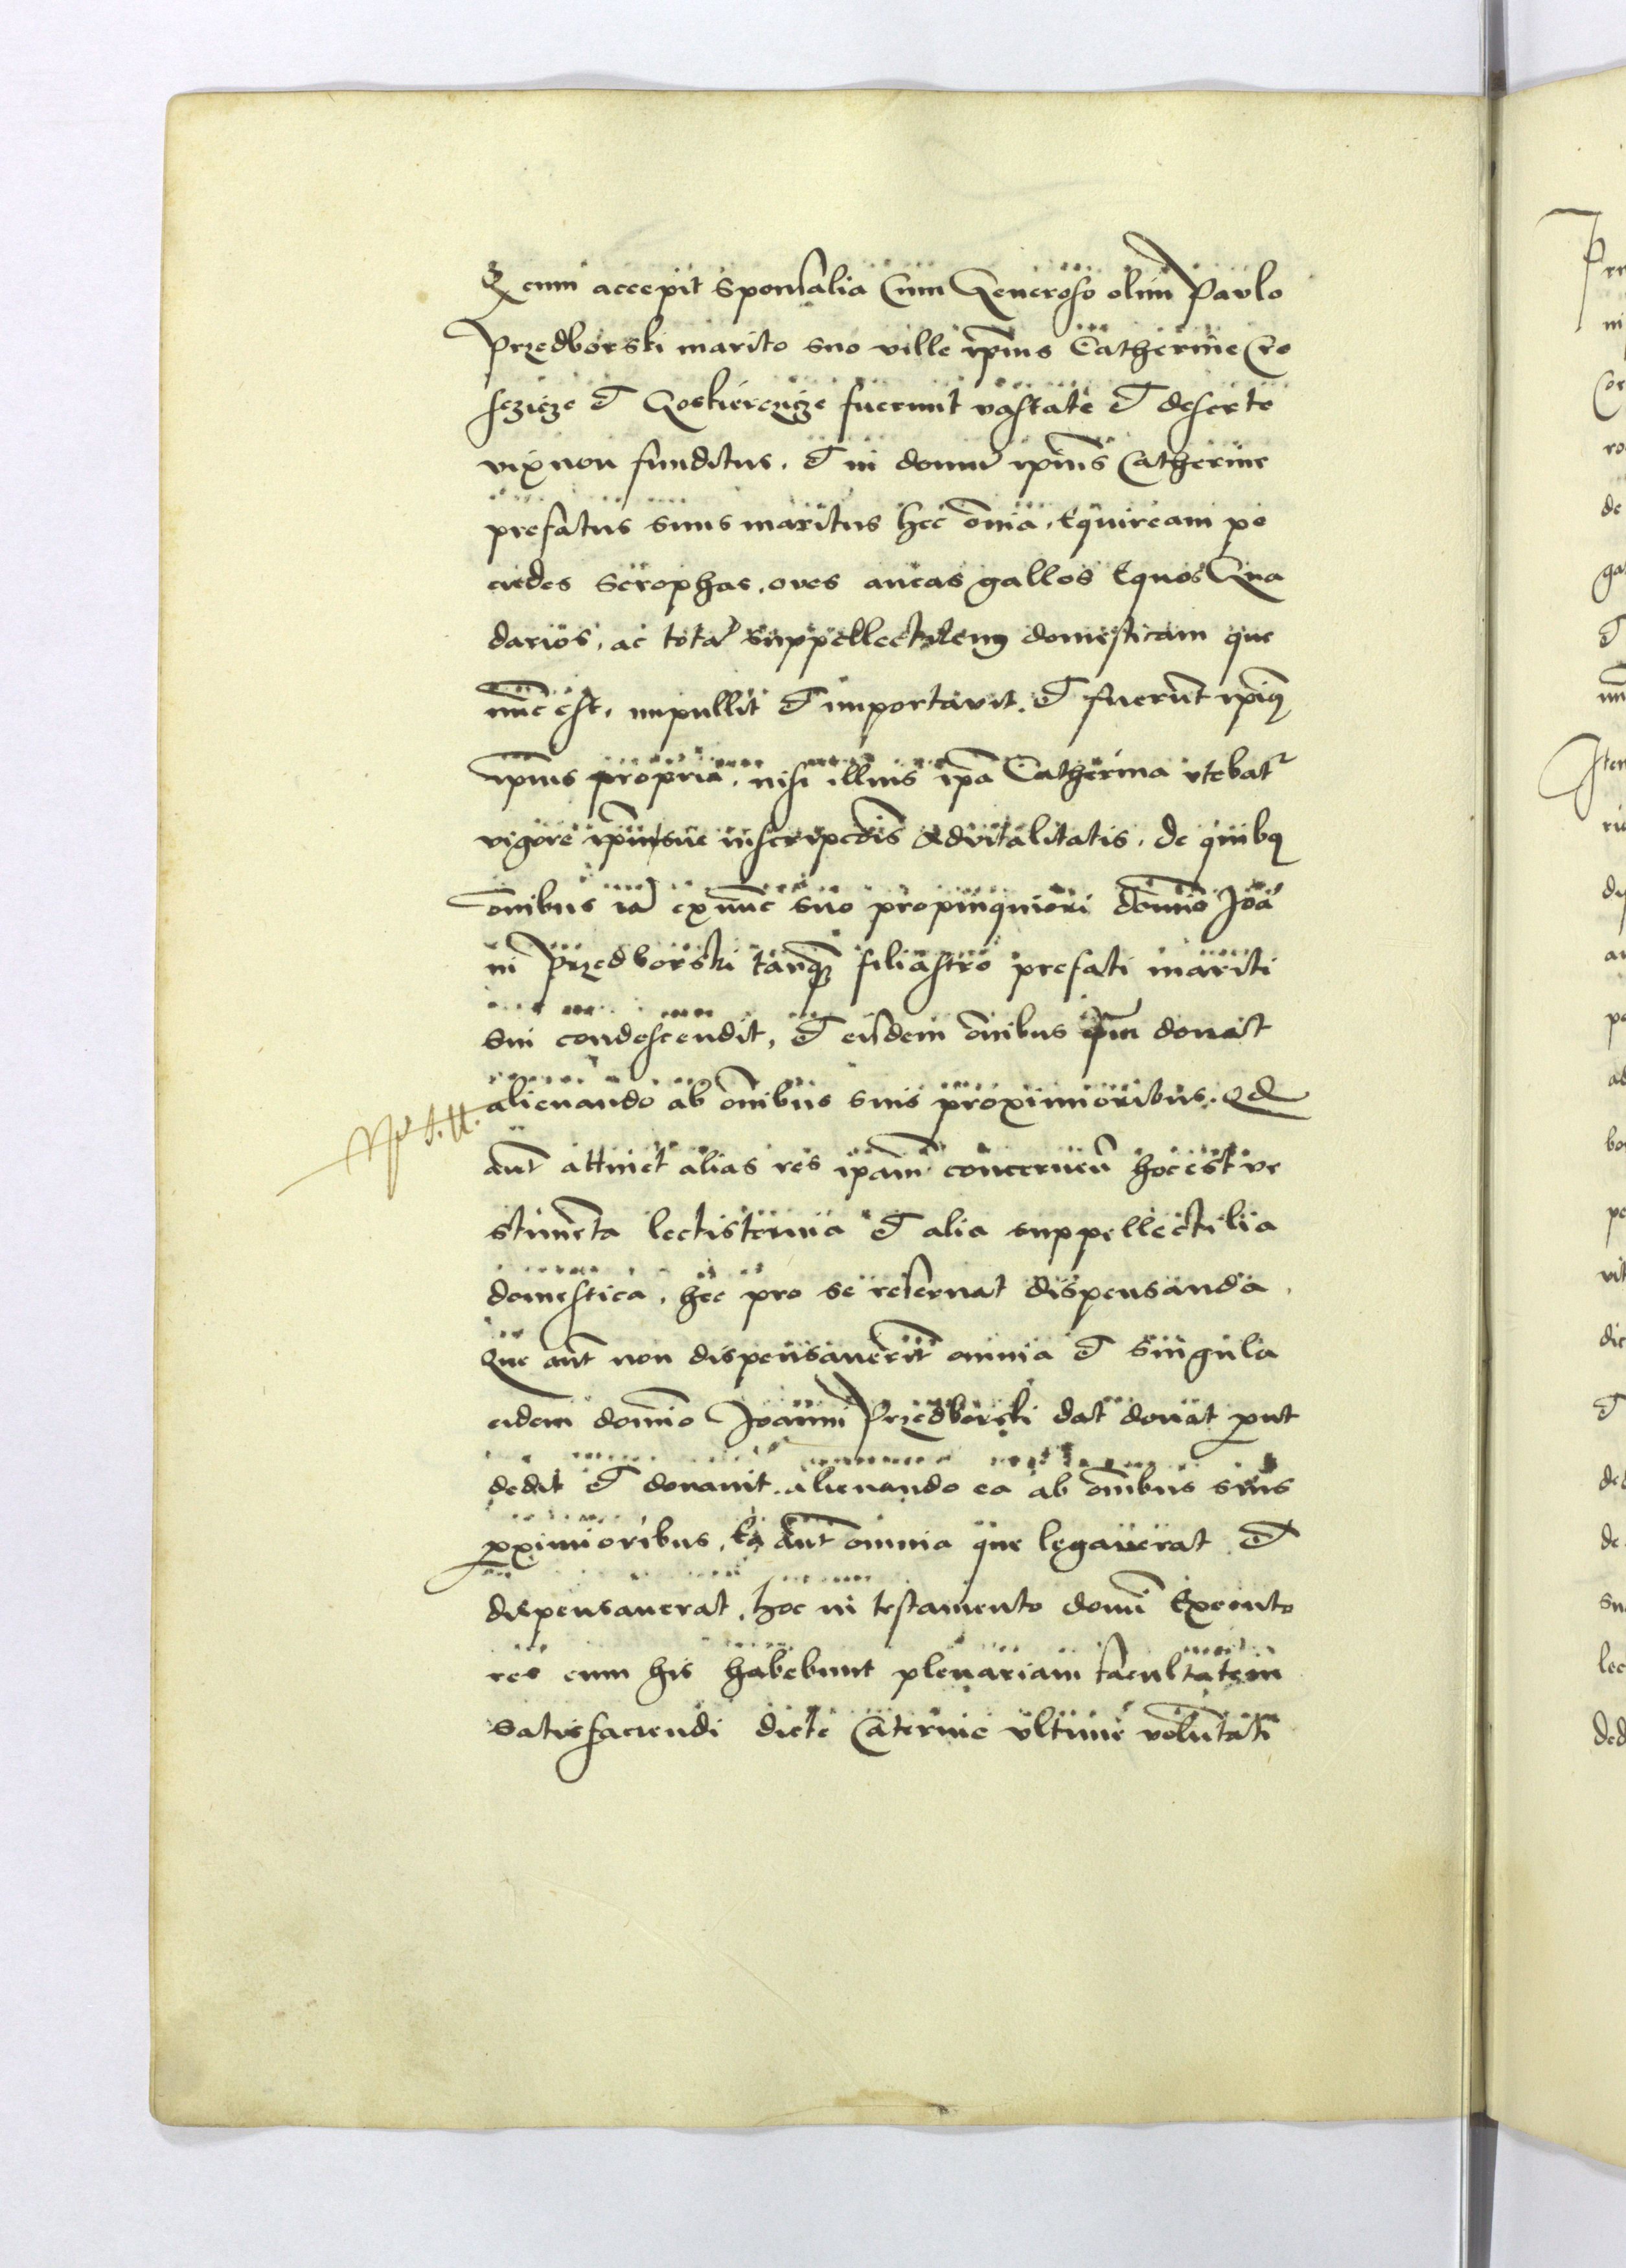 Q cum accepit sponsalia Cum Generoso olim Pavlo
Przedborski marito suo ville ipīus Catherine Cro
et Goskierzycze fuerunt vastate et deserte
vix non funditus. et in domū ipīus Catherine
prefatus suus maritus hec oīnia, Equiream pe
cudes scrophas, oves aucas gallos Equos Qua
darios, ac totā suppellectilem domesticam que
nūc est, impullit et importavit. et fuerūt ipīus
ipīus propria, nisi illius ipā Catherina vtebatr
vigore ipīus sue advitalitatis. de quibq
oīnibus iā exnūc suo propinquiori domīo Joā
ni Przedborski tanq̄ filiastro prefati mariti
sui condescendit, et eisdem oīnibus ipīm donat
alienando ab oīnibus suis proximioribus. Qd
aūt attinet alias res ipām concerneñ hoc est ve
stimēta lectisternia et alia suppellectilia
domestica, hec pro se reservat dispensanda
Que aūt non dispensaverit omnia et singula
eidem domīo Joanni Przedborski dat donat put
dedit et donavit. alienando ea ab oīnibus suis
pximioribus, Ea aūt omnia que legaverat et
dispensaverat, hoc in testamento domī Executo
res cum his habebunt plenariam facultatem
satisfaciendi dicte Caterine vltime volūtati